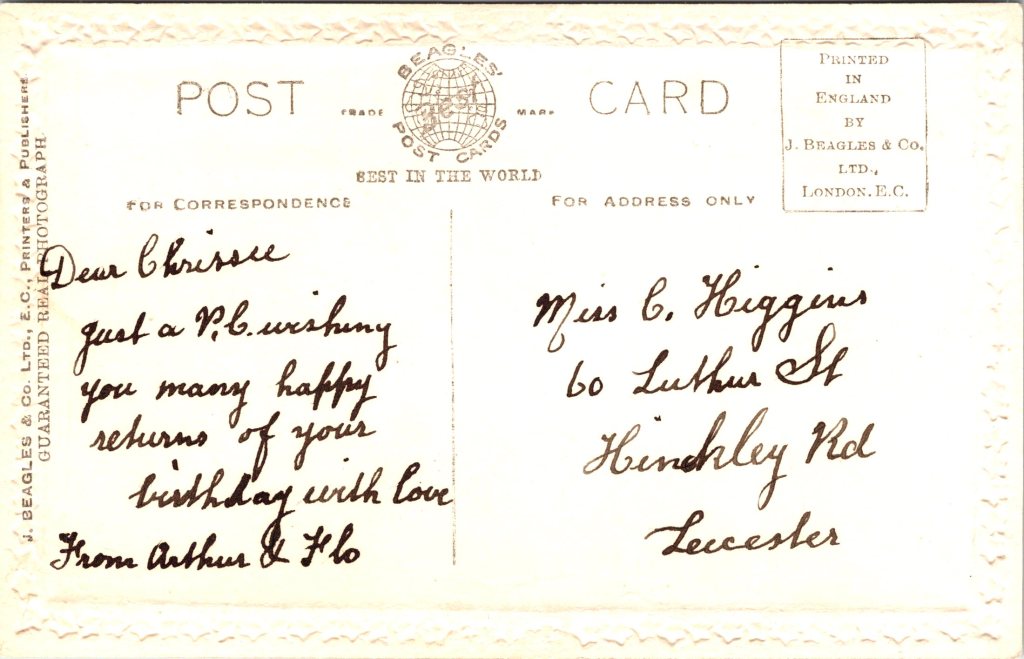 POST CARD
BEAGLES'
BEST
POST CARDS
TRADE MARK
BEST IN THE WORLD
PRINTED
IN
ENGLAND
BY
J. BEAGLES & Co.
LTD.,
LONDON. E.C.
FOR CORRESPONDENCE
FOR ADDRESS ONLY
J. BEAGLES & CO. LTD., E.C., PRINTERS & PUBLISHERS
GUARANTEED REAL PHOTOGRAPH
Dear Chrissie
Just a P.C. wishing
you many happy
returns of your
birthday with love
From Arthur & Flo
Miss C. Higgins
60 Luther St
Hinckley Rd
Leicester